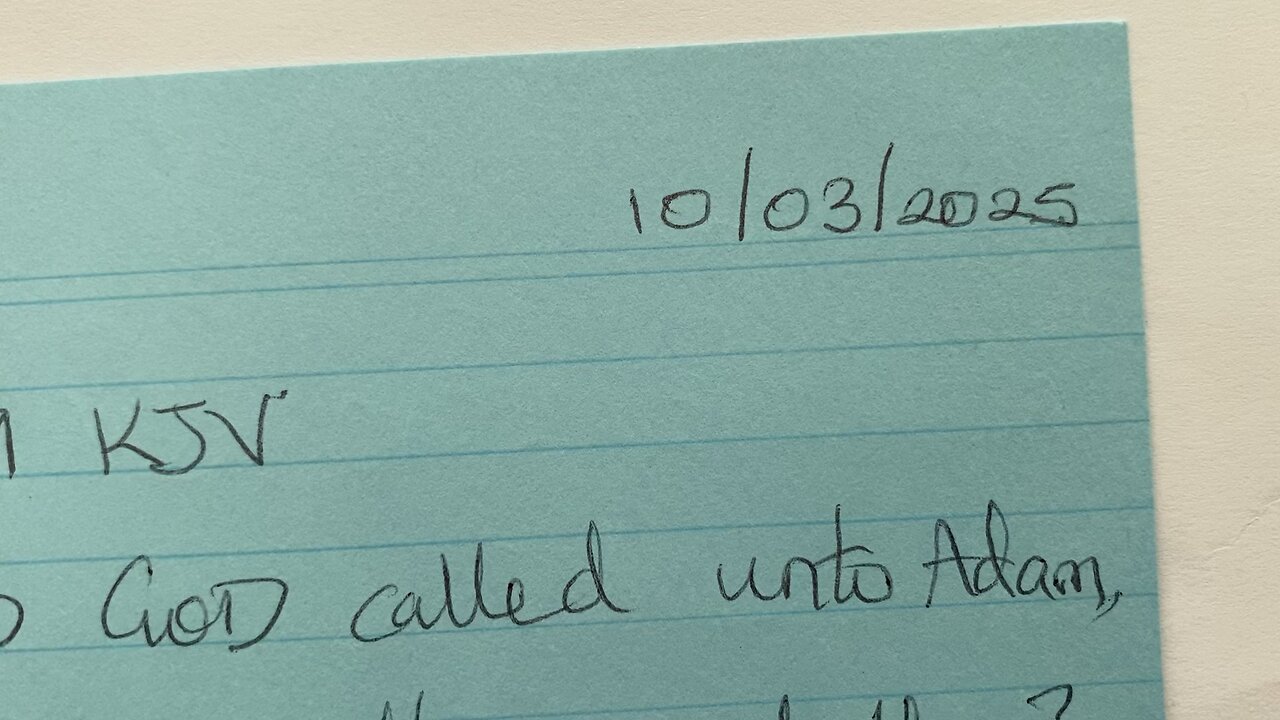 10/03/2025
KJV
GOD called unto Adam,